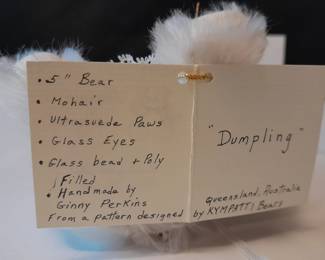 • 5" Bear
• Mohair
• Ultrasuede Paws
• Glass Eyes
• Glass bead + Poly
Filled
• Handmade by
Ginny Perkins
From a pattern designed by KYMPATTI Bears
Queensland, Australia
"Dumpling"